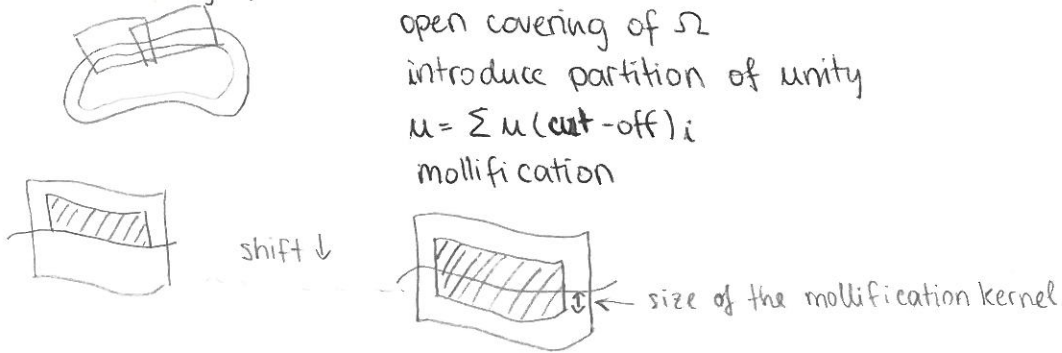 open covering of Ω
introduce partition of unity
u = Σ u (cut-off)i
mollification
shift ↓
← size of the mollification kernel